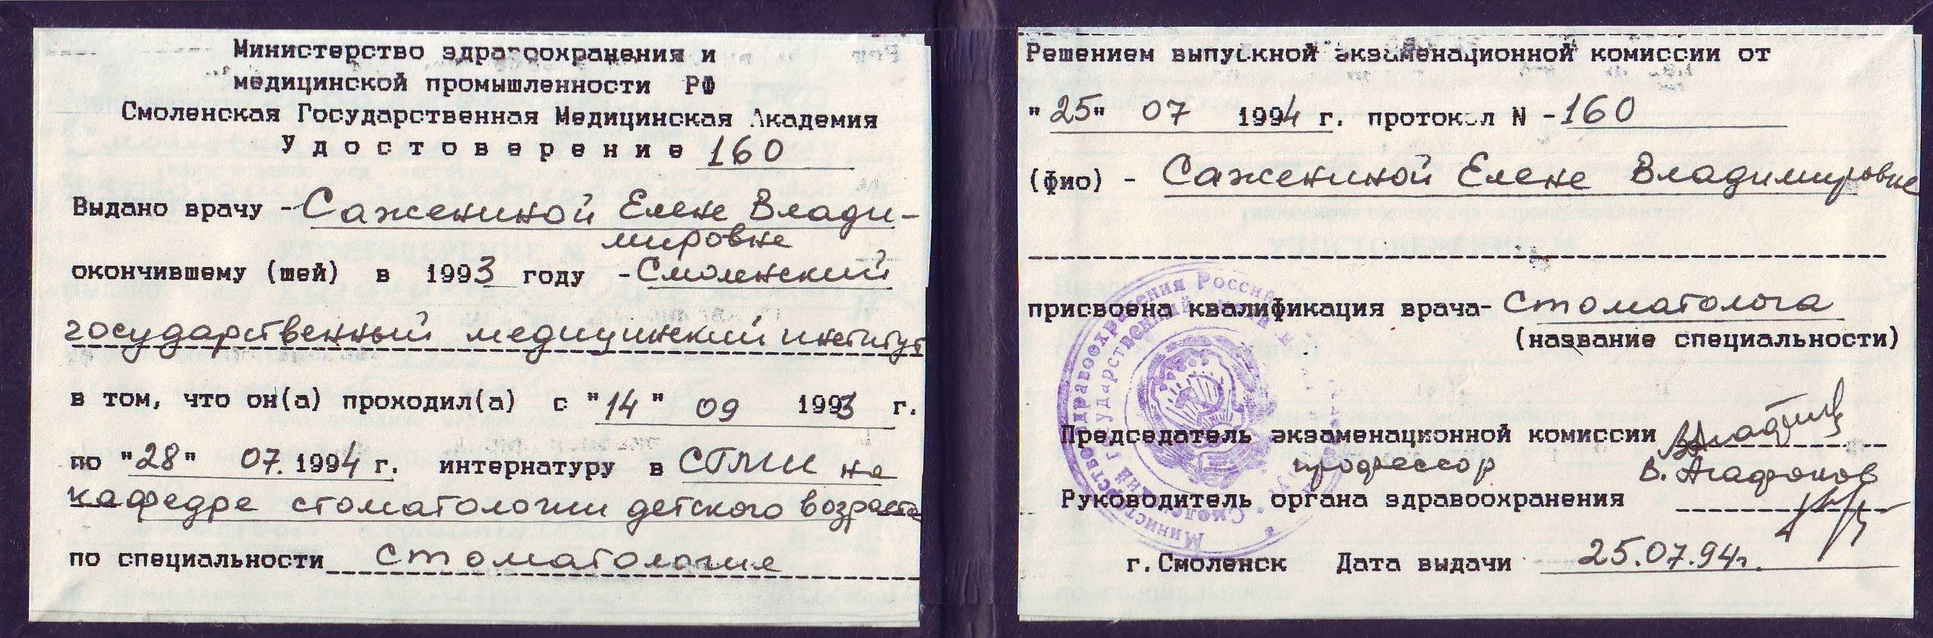 Министерство здравоохранения и
медицинской промышленности РФ
Смоленская Государственная Медицинская Академия
Удостоверение 160
Выдано врачу - Сажениной Елене Влади-
мировне
окончившему (шей) в 1993 году - Смоленский
государственный медицинский институт
в том, что он(а) проходил(а) с "14" 09 1993 г.
по "28" 07. 1994 г. интернатуру в СГМИ на
кафедре стоматологии детского возраста
по специальности стоматология
Решением выпускной экзаменационной комиссии от
"25" 07 1994 г. протокол N - 160
(фио) - Сажениной Елене Владимировне
присвоена квалификация врача - стоматолога
(название специальности)
Председатель экзаменационной комиссии
профессор В. Агафонов
Руководитель органа здравоохранения
г. Смоленск Дата выдачи 25.07.94г.